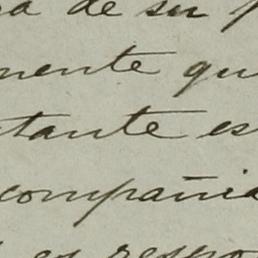 a de su p
mente qu
tante es
compañia
es respo